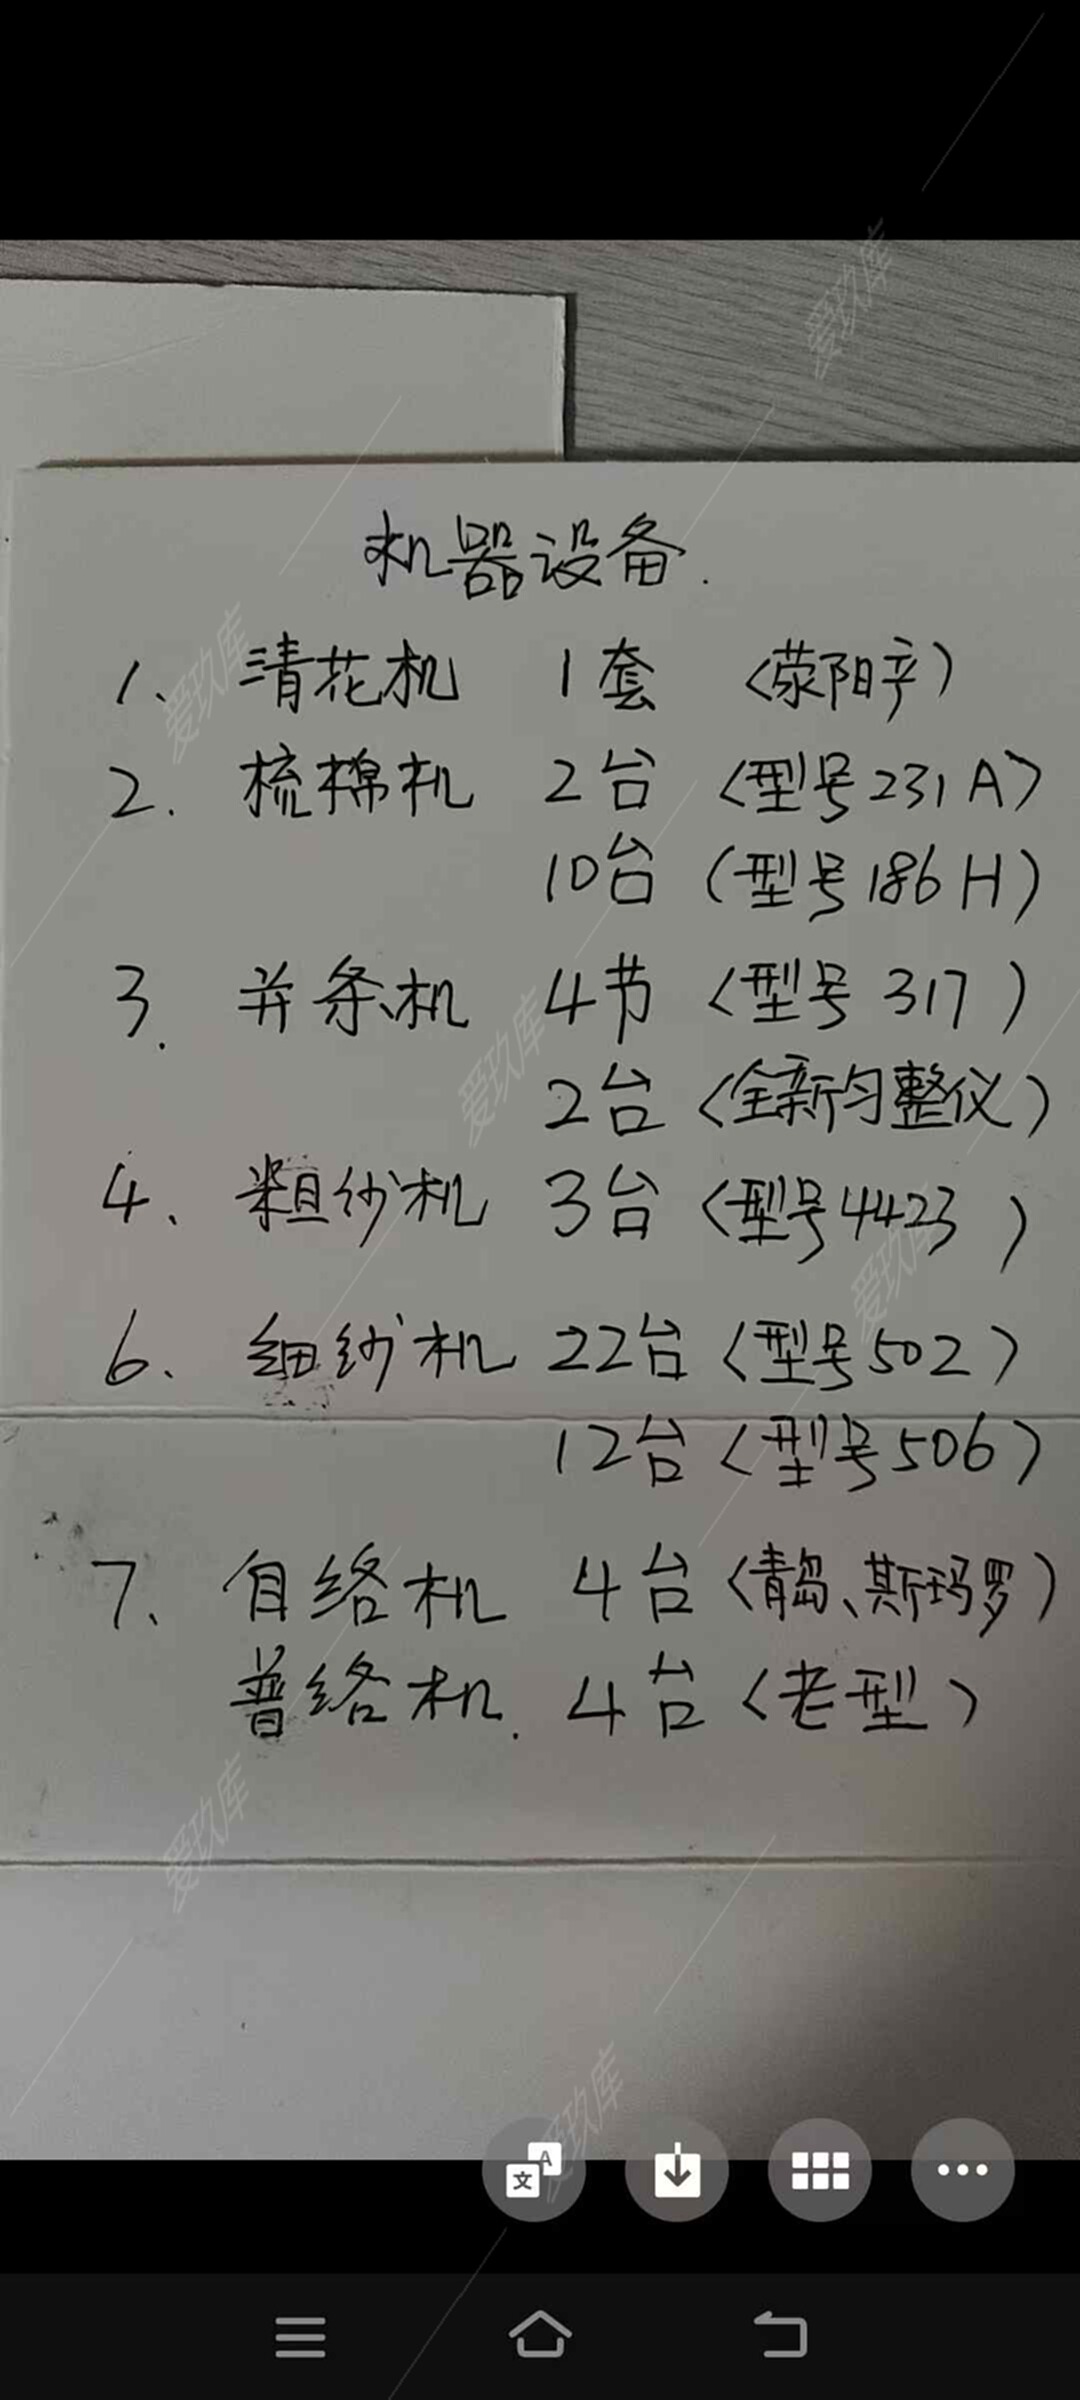 机器设备.
1、清花机 1套 〈荥阳产〉
2. 梳棉机 2台 〈型号231A〉
10台 (型号186H)
3. 并条机 4节 〈型号 317 〉
2台 〈全新匀整仪〉
4、粗纱机 3台 〈型号4423 〉
6、细纱机 22台〈型号502〉
12台〈型号506〉
7、自络机 4台〈青岛、斯玛罗〉
普络机. 4台〈老型〉
爱玖库
爱玖库
爱玖库
爱玖库
爱玖库
爱玖库
文A